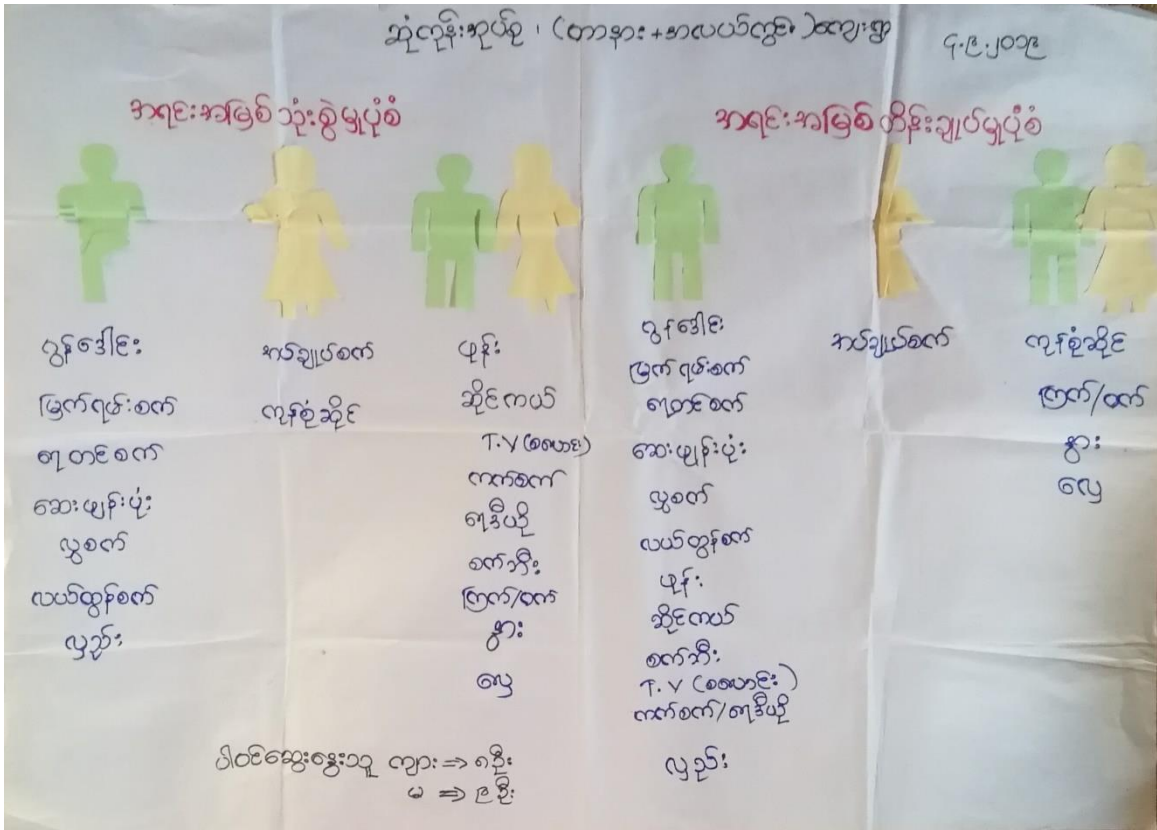 ဆုံကုန်းအုပ်စု ၊ (တာနား+အလယ်ကွင်း)ကျေးရွာ
၄.၉.၂၀၁၉
အရင်းအမြစ် သုံးစွဲမှုပုံစံ
ထွန်ဒေါင်း
မြက်ရမ်းစက်
ရေတင်စက်
ဆေးဖျန်းပုံး
လွှစက်
လယ်ထွန်စက်
လှည်း
အပ်ချုပ်စက်
ကုန်စုံဆိုင်
ဖုန်း
ဆိုင်ကယ်
T.V (စလောင်း)
ကက်စက်
ရေဒီယို
စက်ဘီး
ကြက်/ဝက်
နွား
လှေ
အရင်းအမြစ် ထိန်းချုပ်မှုပုံစံ
ထွန်ဒေါင်း
မြက်ရမ်းစက်
ရေတင်စက်
ဆေးဖျန်းပုံး
လွှစက်
လယ်ထွန်စက်
ဖုန်း
ဆိုင်ကယ်
စက်ဘီး
T.V (စလောင်း)
ကက်စက်/ရေဒီယို
လှည်း
အပ်ချုပ်စက်
ကုန်စုံဆိုင်
ကြက်/ဝက်
နွား
လှေ
ပါဝင်ဆွေးနွေးသူ ကျား ⇒ ၈ဦး
မ ⇒ ၉ဦး